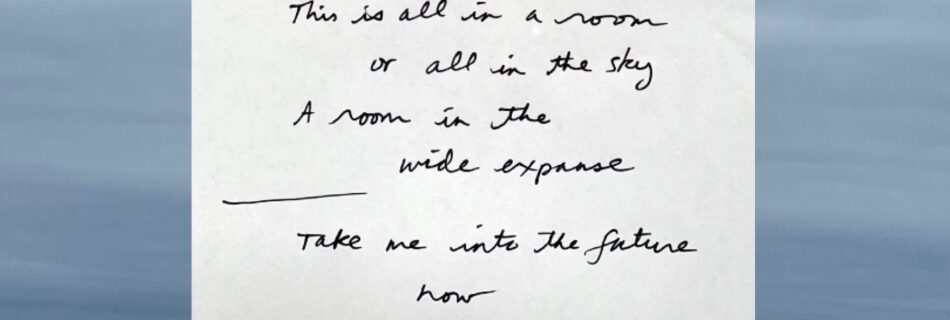 This is all in a room
or all in the sky
A room in the
wide expanse
Take me into the future
now